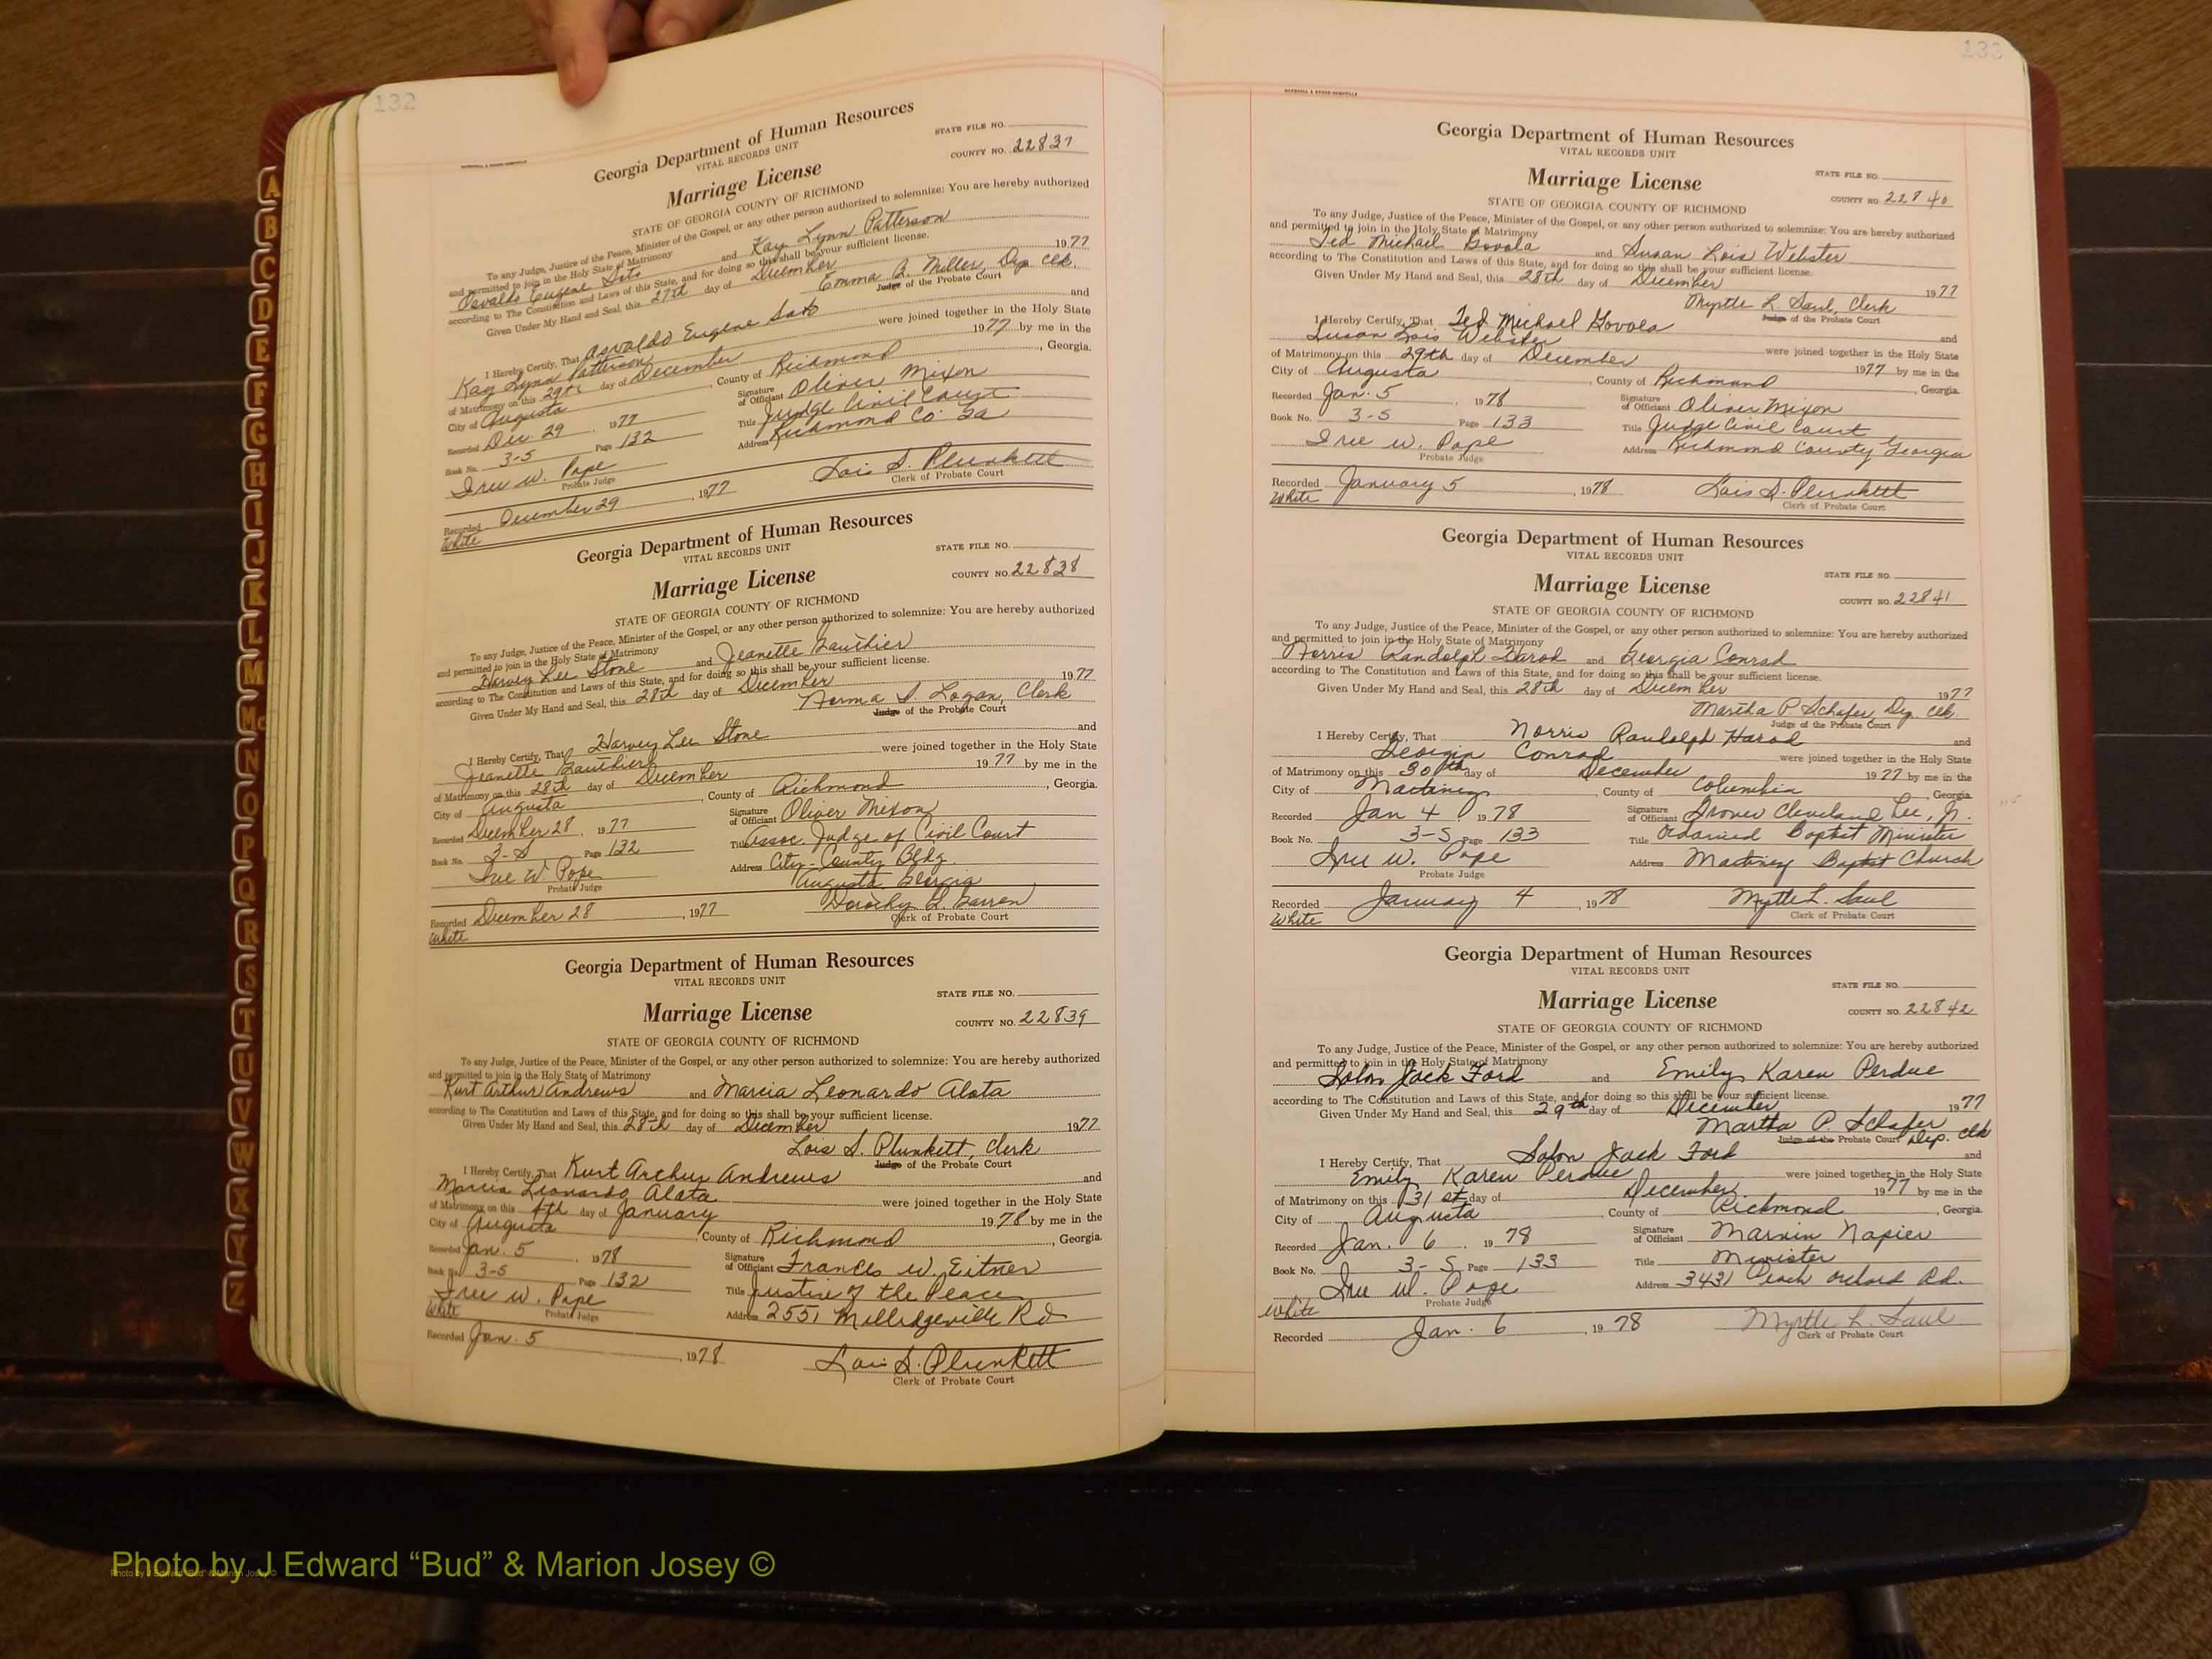 132
Georgia Department of Human Resources
VITAL RECORDS UNIT
STATE FILE NO.
COUNTY NO. 22837
Marriage License
STATE OF GEORGIA COUNTY OF RICHMOND
To any Judge, Justice of the Peace, Minister of the Gospel, or any other person authorized to solemnize: You are hereby authorized
and permitted to join in the Holy State of Matrimony
Osvaldo Eugene Soto and Kay Lynn Patterson
according to The Constitution and Laws of this State, and for doing so this shall be your sufficient license.
Given Under My Hand and Seal, this 27th day of December 1977
Emma B. Miller, Dep. Clk.
Judge of the Probate Court
I Hereby Certify, That Osvaldo Eugene Soto and
Kay Lynn Patterson were joined together in the Holy State
of Matrimony on this 29th day of December 1977 by me in the
City of Augusta, County of Richmond, Georgia.
Recorded Dec. 29, 1977 Signature of Officiant Oliver Mixon
Book No. 3-S Page 132 Title Judge Civil Court
Iree W. Pope Address Richmond Co. Ga
Probate Judge
Lois S. Plunkett
Clerk of Probate Court
Recorded December 29, 1977
White
Georgia Department of Human Resources
VITAL RECORDS UNIT
STATE FILE NO.
COUNTY NO. 22838
Marriage License
STATE OF GEORGIA COUNTY OF RICHMOND
To any Judge, Justice of the Peace, Minister of the Gospel, or any other person authorized to solemnize: You are hereby authorized
and permitted to join in the Holy State of Matrimony
Harvey Lee Stone and Jeanette Gauthier
according to The Constitution and Laws of this State, and for doing so this shall be your sufficient license.
Given Under My Hand and Seal, this 28th day of December 1977
Norma S. Logan, Clerk
Judge of the Probate Court
I Hereby Certify, That Harvey Lee Stone and
Jeanette Gauthier were joined together in the Holy State
of Matrimony on this 28th day of December 1977 by me in the
City of Augusta, County of Richmond, Georgia.
Recorded December 28, 1977 Signature of Officiant Oliver Mixon
Book No. 3-S Page 132 Title Assoc. Judge of Civil Court
Iree W Pope Address City-County Bldg.
Probate Judge Augusta, Georgia
Dorothy G. Barren
Clerk of Probate Court
Recorded December 28, 1977
White
Georgia Department of Human Resources
VITAL RECORDS UNIT
STATE FILE NO.
Marriage License
COUNTY NO. 22839
STATE OF GEORGIA COUNTY OF RICHMOND
To any Judge, Justice of the Peace, Minister of the Gospel, or any other person authorized to solemnize: You are hereby authorized
and permitted to join in the Holy State of Matrimony
Kurt Arthur Andrews and Marcia Leonardo Alota
according to The Constitution and Laws of this State, and for doing so this shall be your sufficient license.
Given Under My Hand and Seal, this 28th day of December 1977
Lois S. Plunkett, Clerk
Judge of the Probate Court
I Hereby Certify, That Kurt Arthur Andrews and
Marcia Leonardo Alota were joined together in the Holy State
of Matrimony on this 4th day of January 1978 by me in the
City of Augusta, County of Richmond, Georgia.
Recorded Jan. 5, 1978 Signature of Officiant Frances W. Eitner
Book No. 3-S Page 132 Title Justice of the Peace
Iree W. Pope Address 2551 Milledgeville Rd
White Probate Judge
Recorded Jan. 5, 1978 Lois S. Plunkett
Clerk of Probate Court
133
Georgia Department of Human Resources
VITAL RECORDS UNIT
STATE FILE NO.
Marriage License
COUNTY NO. 22840
STATE OF GEORGIA COUNTY OF RICHMOND
To any Judge, Justice of the Peace, Minister of the Gospel, or any other person authorized to solemnize: You are hereby authorized
and permitted to join in the Holy State of Matrimony
Ted Michael Govola and Susan Lois Webster
according to The Constitution and Laws of this State, and for doing so this shall be your sufficient license.
Given Under My Hand and Seal, this 28th day of December 1977
Myrtle L. Saul, Clerk
Judge of the Probate Court
I Hereby Certify, That Ted Michael Govola and
Susan Lois Webster were joined together in the Holy State
of Matrimony on this 29th day of December 1977 by me in the
City of Augusta, County of Richmond, Georgia.
Recorded Jan. 5, 1978 Signature of Officiant Oliver Mixon
Book No. 3-S Page 133 Title Judge Civil Court
Iree W. Pope Address Richmond County Georgia
Probate Judge
Recorded January 5, 1978 Lois S. Plunkett
White Clerk of Probate Court
Georgia Department of Human Resources
VITAL RECORDS UNIT
STATE FILE NO.
Marriage License
COUNTY NO. 22841
STATE OF GEORGIA COUNTY OF RICHMOND
To any Judge, Justice of the Peace, Minister of the Gospel, or any other person authorized to solemnize: You are hereby authorized
and permitted to join in the Holy State of Matrimony
Norris Randolph Harod and Georgia Conrad
according to The Constitution and Laws of this State, and for doing so this shall be your sufficient license.
Given Under My Hand and Seal, this 28th day of December 1977
Martha P. Schafer, Dep. Clk.
Judge of the Probate Court
I Hereby Certify, That Norris Randolph Harod and
Georgia Conrad were joined together in the Holy State
of Matrimony on this 30th day of December 1977 by me in the
City of Martinez, County of Columbia, Georgia.
Recorded Jan 4, 1978 Signature of Officiant Grover Cleveland Lee, Jr.
Book No. 3-S Page 133 Title Ordained Baptist Minister
Iree W. Pope Address Martinez Baptist Church
Probate Judge
Recorded January 4, 1978 Myrtle L. Saul
White Clerk of Probate Court
Georgia Department of Human Resources
VITAL RECORDS UNIT
STATE FILE NO.
Marriage License
COUNTY NO. 22842
STATE OF GEORGIA COUNTY OF RICHMOND
To any Judge, Justice of the Peace, Minister of the Gospel, or any other person authorized to solemnize: You are hereby authorized
and permitted to join in the Holy State of Matrimony
Solon Jack Ford and Emily Karen Perdue
according to The Constitution and Laws of this State, and for doing so this shall be your sufficient license.
Given Under My Hand and Seal, this 29th day of December 1977
Martha P. Schafer
Judge of the Probate Court Dep. Clk
I Hereby Certify, That Solon Jack Ford and
Emily Karen Perdue were joined together in the Holy State
of Matrimony on this 31st day of December 1977 by me in the
City of Augusta, County of Richmond, Georgia.
Recorded Jan. 6, 1978 Signature of Officiant Marvin Napier
Book No. 3-S Page 133 Title Minister
Iree W. Pope Address 3431 Peach Orchard Rd.
White Probate Judge
Recorded Jan. 6, 1978 Myrtle L. Saul
Clerk of Probate Court
A
B
C
D
E
F
G
H
I
J
K
L
M
Mc
N
O
P
Q
R
S
T
U
V
W
X
Y
Z
Photo by J Edward “Bud” & Marion Josey ©
Photo by J Edward "Bud" & Marion Josey ©